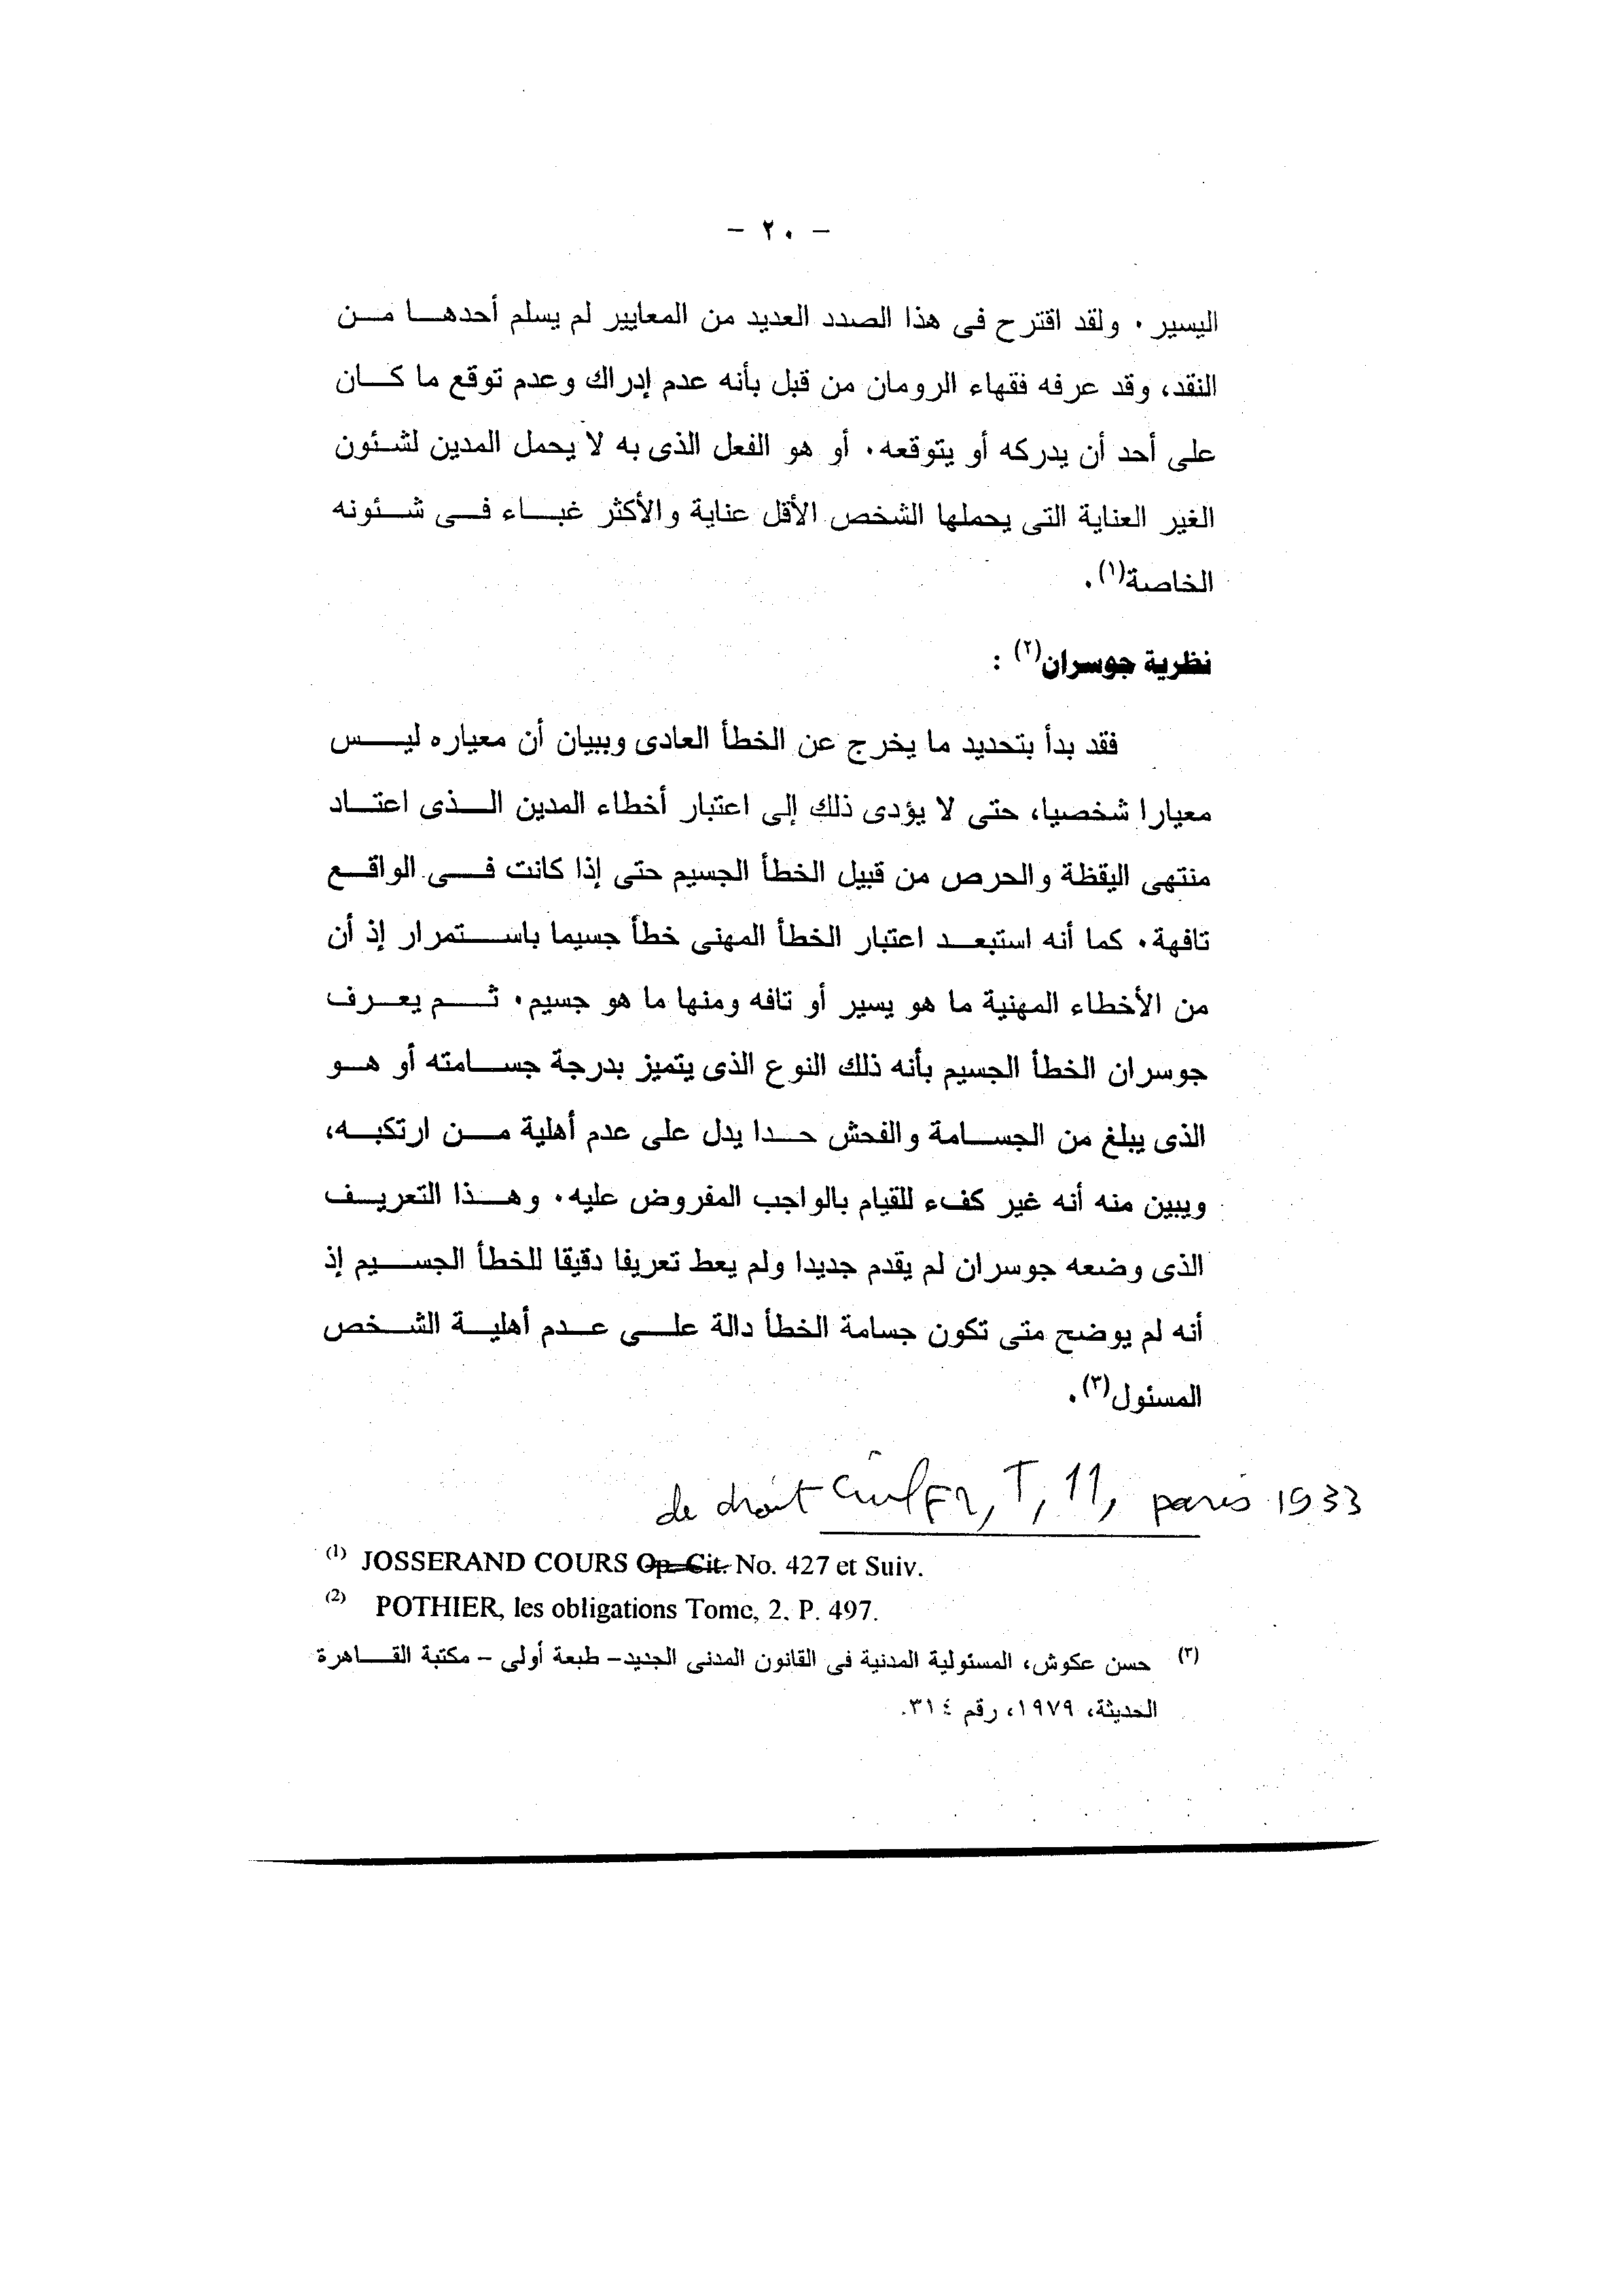 - ٢٠ -
اليسير. ولقد اقترح فى هذا الصدد العديد من المعايير لم يسلم أحدها من
النقد، وقد عرفه فقهاء الرومان من قبل بأنه عدم إدراك وعدم توقع ما كان
على أحد أن يدركه أو يتوقعه. أو هو الفعل الذى به لا يحمل المدين لشئون
الغير العناية التى يحملها الشخص الأقل عناية والأكثر غباء فى شئونه
الخاصة(١).
نظرية جوسران(٢) :
فقد بدأ بتحديد ما يخرج عن الخطأ العادى وببيان أن معياره ليس
معيارا شخصيا، حتى لا يؤدى ذلك إلى اعتبار أخطاء المدين الذى اعتاد
منتهى اليقظة والحرص من قبيل الخطأ الجسيم حتى إذا كانت فى الواقع
تافهة. كما أنه استبعد اعتبار الخطأ المهنى خطأ جسيما باستمرار إذ أن
من الأخطاء المهنية ما هو يسير أو تافه ومنها ما هو جسيم. ثم يعرف
جوسران الخطأ الجسيم بأنه ذلك النوع الذى يتميز بدرجة جسامته أو هو
الذى يبلغ من الجسامة والفحش حدا يدل على عدم أهلية من ارتكبه،
ويبين منه أنه غير كفء للقيام بالواجب المفروض عليه. وهذا التعريف
الذى وضعه جوسران لم يقدم جديدا ولم يعط تعريفا دقيقا للخطأ الجسيم إذ
أنه لم يوضح متى تكون جسامة الخطأ دالة على عدم أهلية الشخص
المسئول(٣).
de droit civil F2, T, 11, paris 1933
(1) JOSSERAND COURS Op. Cit. No. 427 et Suiv.
(2) POTHIER, les obligations Tome, 2. P. 497.
(٣) حسن عكوش، المسئولية المدنية فى القانون المدنى الجديد- طبعة أولى - مكتبة القاهرة
الحديثة، ١٩٧٩، رقم ٣١٤.